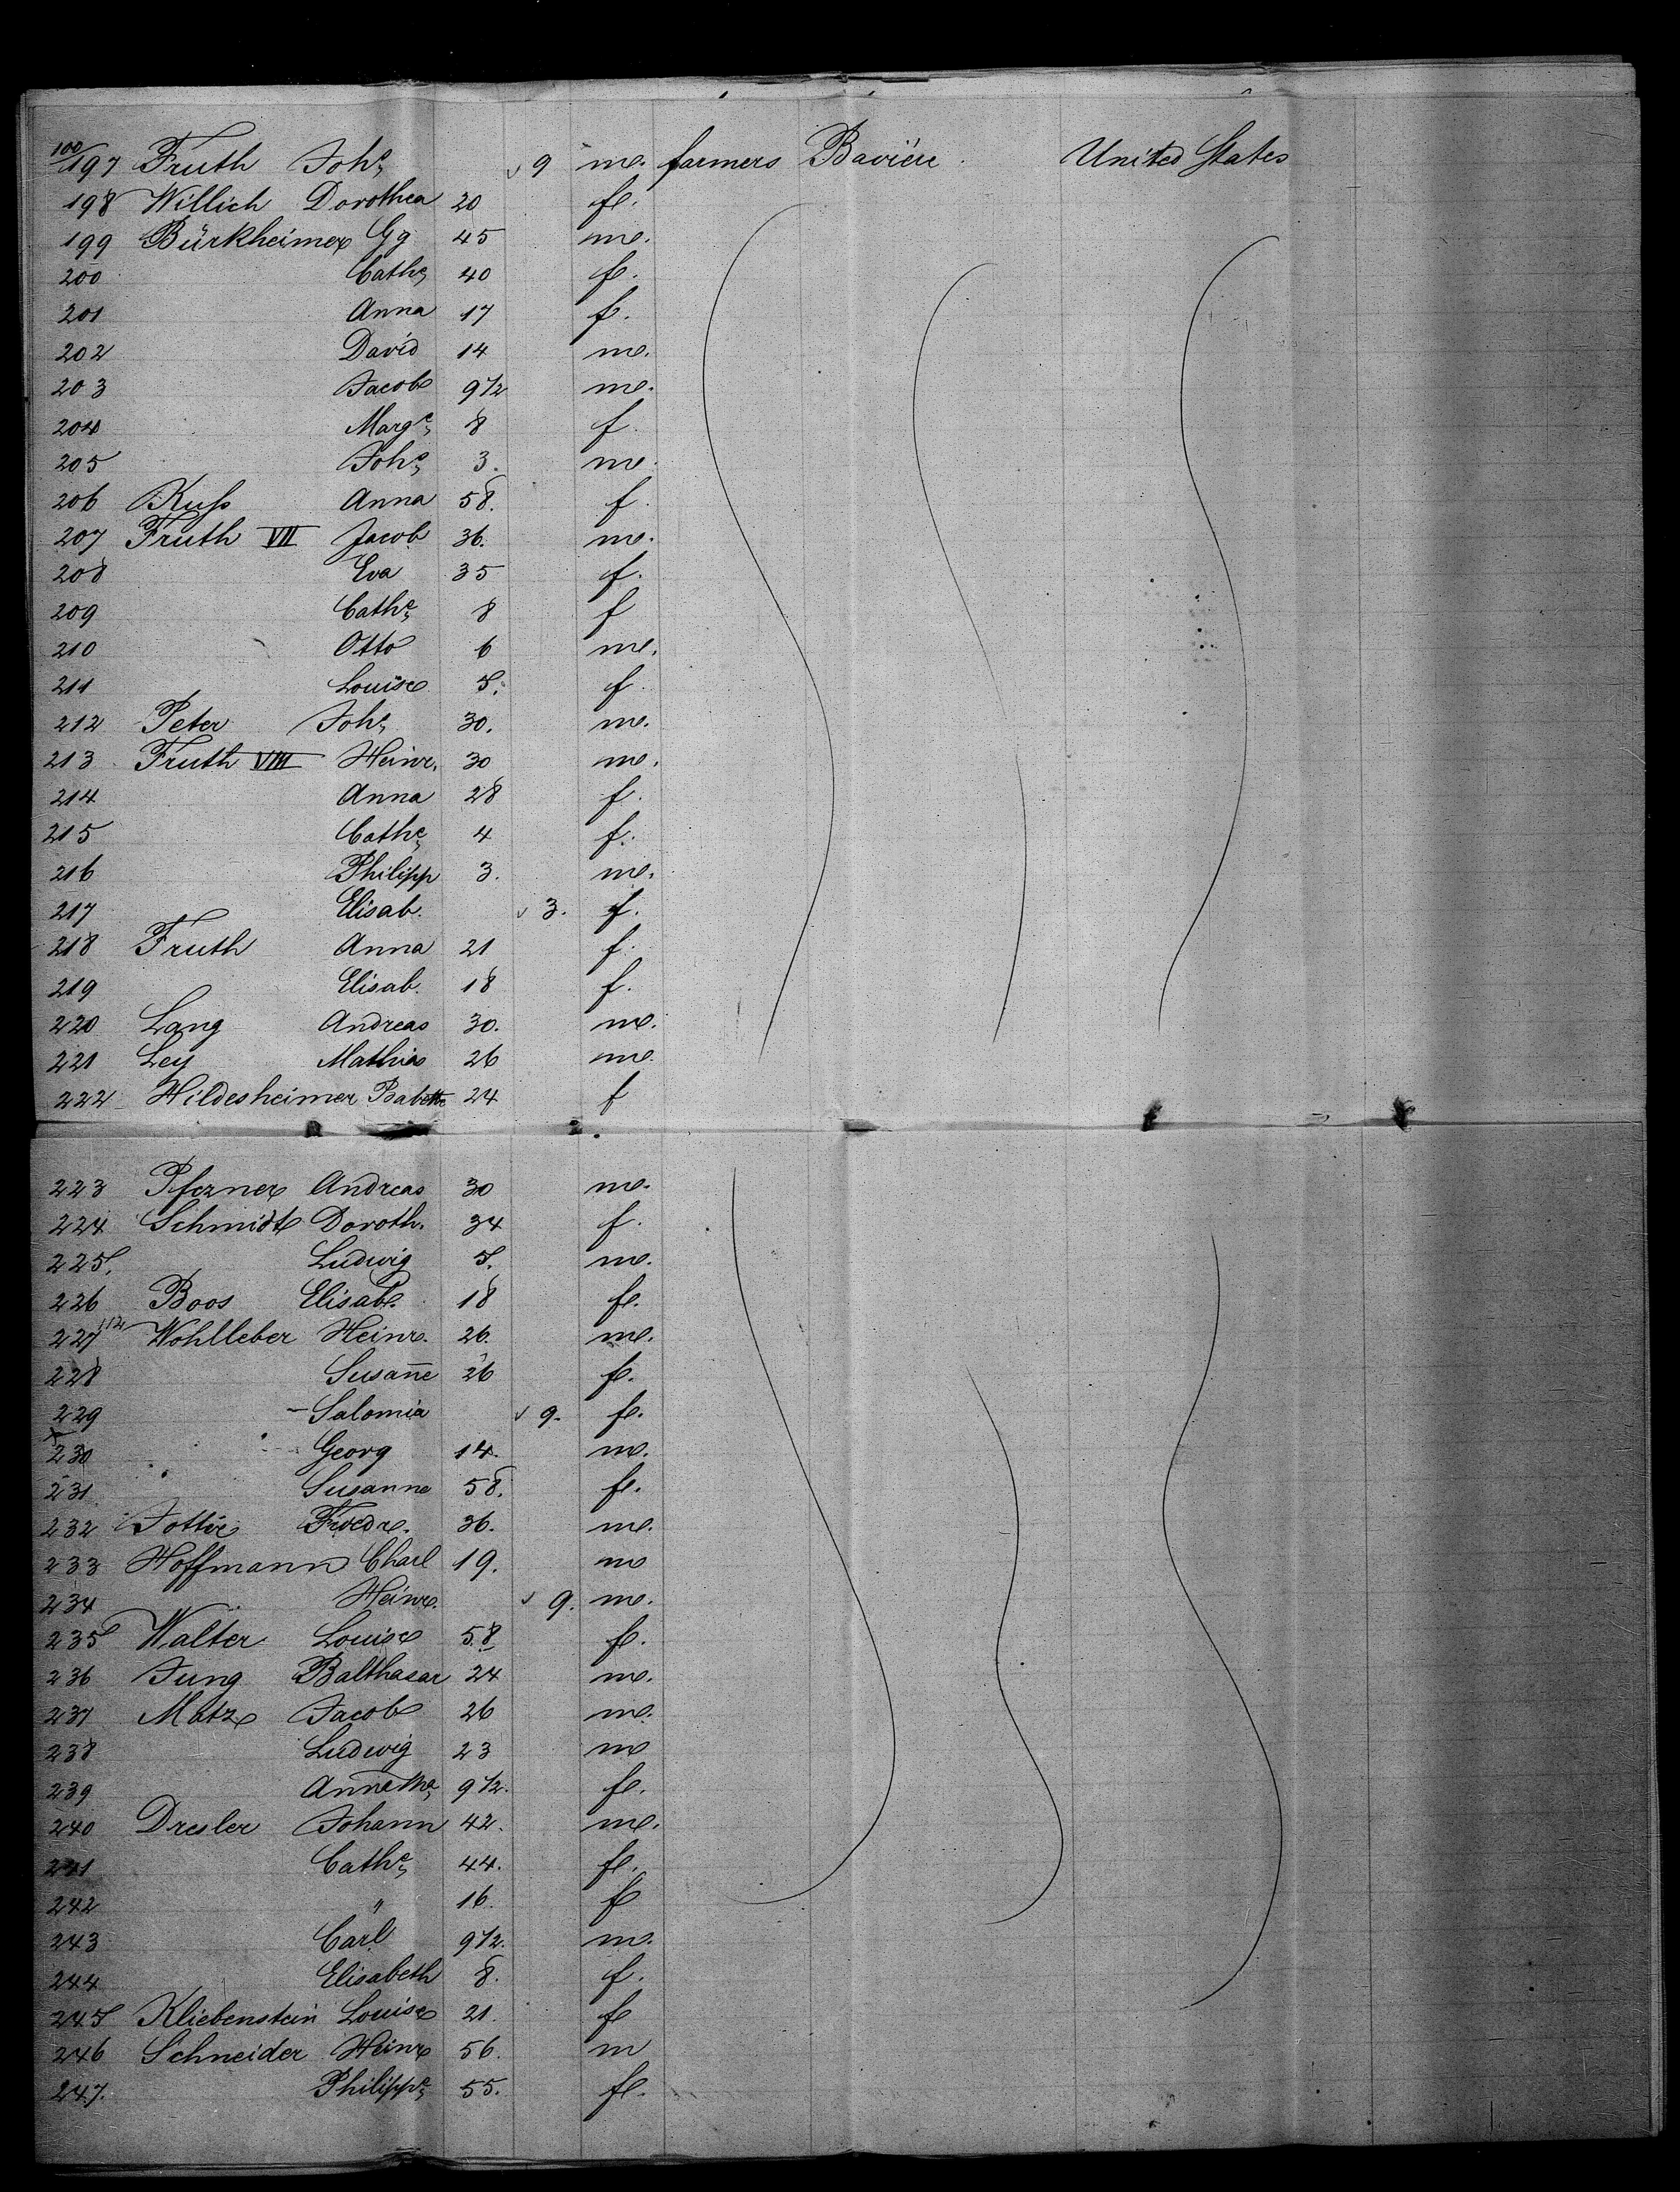 100/197 Fruth Joh^s 9 m. farmers Bavière United States
198 Willich Dorothea 20 f.
199 Bürkheimer Gg 45 m.
200 Cath^e 40 f.
201 Anna 17 f.
202 David 14 m.
203 Jacob 9 1/2 m.
204 Marg^e 8 f.
205 Joh^s 3. m.
206 Kuß Anna 58. f.
207 Fruth VII Jacob 36. m.
208 Eva 35 f.
209 Cath^e 8 f
210 Otto 6 m.
211 Louise 5. f.
212 Peter Joh^s 30. m.
213 Fruth VIII Heinr. 30 m.
214 Anna 28 f.
215 Cath^e 4 f.
216 Philipp 3. m.
217 Elisab. 3. f.
218 Fruth Anna 21 f.
219 Elisab. 18 f.
220 Lang Andreas 30. m.
221 Ley Mathias 26 m.
222 Hildesheimer Babette 24 f
223 Pfezner Andreas 30 m.
224 Schmidt Doroth. 34 f.
225. Ludwig 5. m.
226 Boos Elisab. 18 f.
227 112 Wohlleber Heinr. 26. m.
228 Susan̄e 26 f.
229 Salomia 9. f.
230 Georg 14. m.
231 Susanna 58. f.
232 Friedr. 36. m.
233 Hoffmann Charl 19. m
234 Heinr. 9. m.
235 Walter Louise 58 f.
236 Jung Balthasar 24 m.
237 Matz Jacob 26 m.
238 Ludwig 23 m
239 Anna Ma 9 1/2. f.
240 Dresler Johann 42. m.
241 Cath^e 44. f.
242 " 16. f
243 Carl 9 1/2. m.
244 Elisabeth 8. f.
245 Kliebenstein Louise 21. f
246 Schneider Heinr 56. m
247. Philipp^e 55. f.